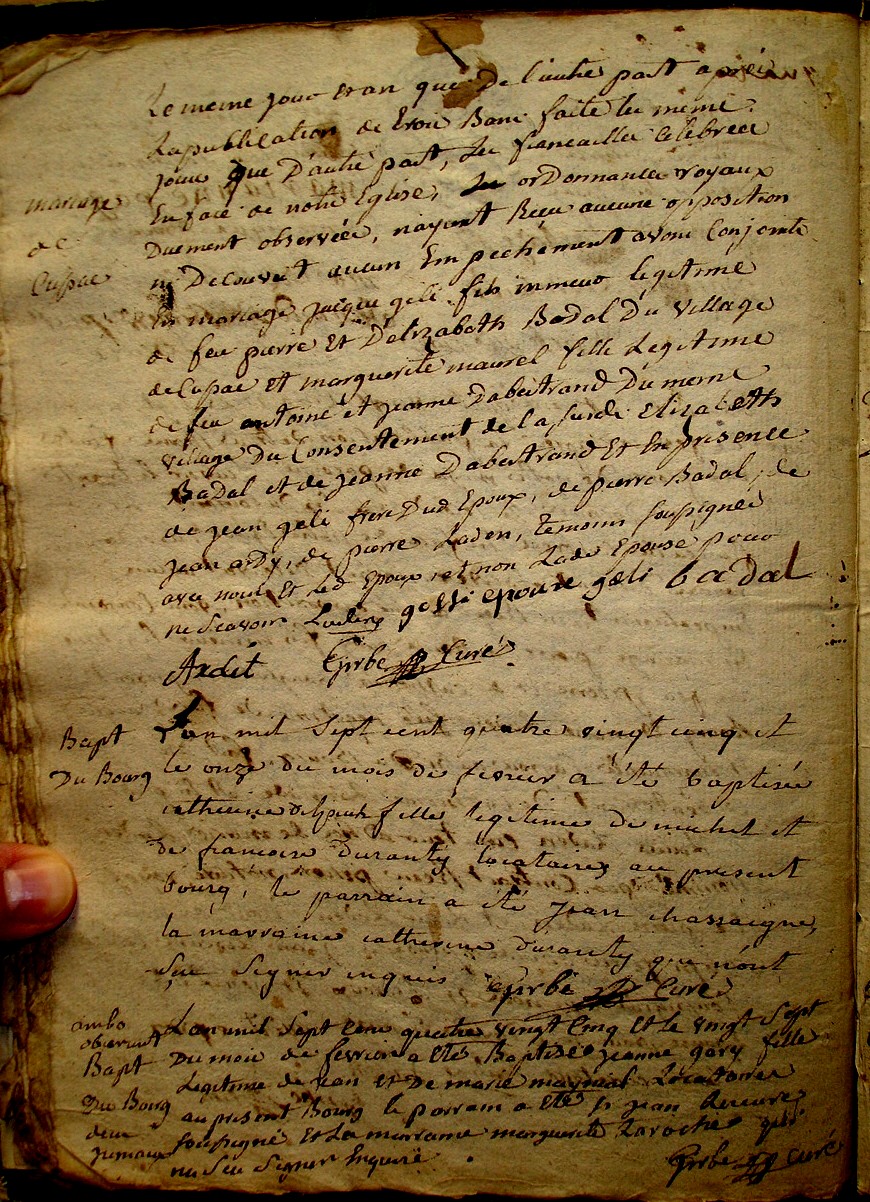 Le meme jour et an que de l'autre part après
La publication de trois Banc faite les meme
jours que D'autre part, Les fiancailles Celebrées
mariage En face de notre Eglise, Les ordonnances royaux
de Duement observées, n'ayant Reçu aucune opposition
Cupac ni Decouvert aucun Empechement avons Conjoints
En mariage jacque geli fils mineur legitime
de feu pierre Et D'elizabeth Badal Du village
de Cupac et marguerite maurel fille Legitime
de feu antoine et jeanne Dabertrand Du meme
village Du Consentement de la susde Elizabeth
Badal et de jeanne Dabertrand Et En presence
de jean geli frere Dud Epoux, de pierre Badal, de
jean ardy, de pierre Laden, temoins soussignés
avec nous Et Led Epoux et non Lade Epouse pour
ne Scavoir geli epoux geli badal
Ardit Girbe Curé
Bapt L'an mil Sept cent quatre vingt cinq et
Du Bourg le onze du mois de fevrier a été baptisée
catherine fille legitime de michel et
de francoise Duranty locataires au present
bourg, le parrain a été jean chassaigne,
la marraine catherine Duranty qui n'ont
Sçu Signer inquis Girbe Curé
ambo L'an mil Sept Cent quatre vingt Cinq Et le vingt Sept
obierunt
Bapt Du mois de fevrier a Eté Baptisée jeanne gary fille
Du Bourg Legitime de jean et De marie maynial Locatairer
deux au present Bourg le parrain a Eté Sr jean
jumeaux soussigné Et La marraine marguerite Laroche qui
na Sçu Signer Enquise Girbe curé